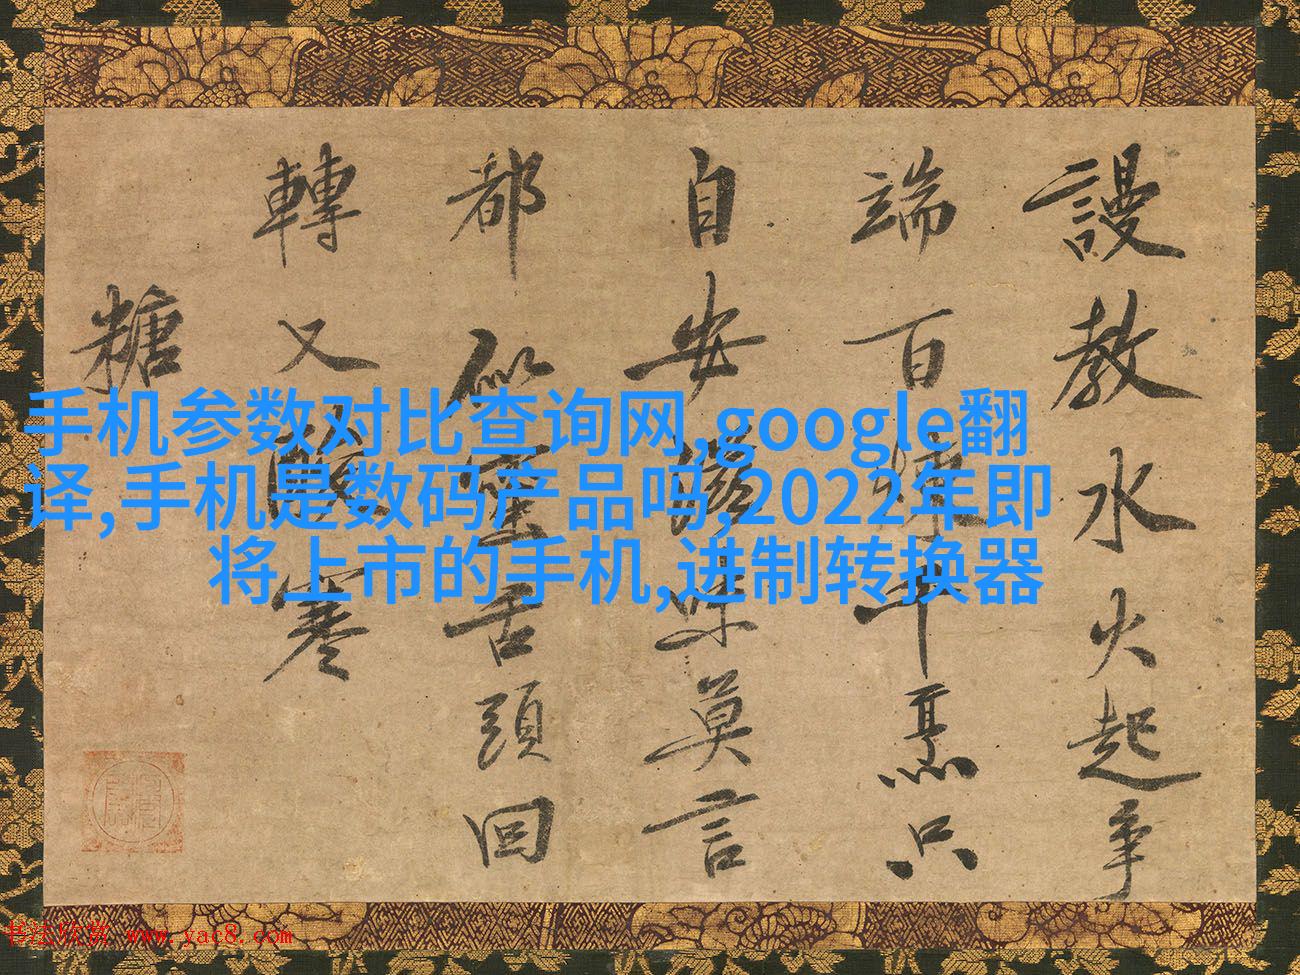 謾教水火起争
端百煉千熏只
自安滋味莫言
都似蜜舌頭回
轉又酸寒
糖
手机参数对比查询网,google翻
译,手机是数码产品吗,2022年即
将上市的手机,进制转换器
书法欣赏 www.yac8.com